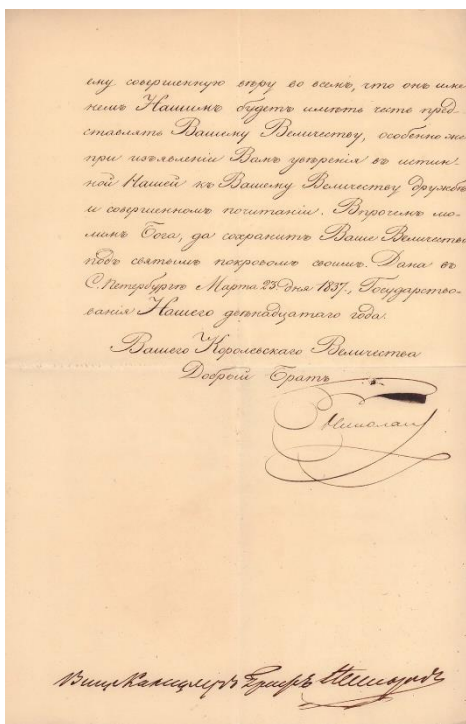 ему совершенную вѣру во всемъ, что онъ име-
немъ Нашимъ будетъ имѣть честь пред-
ставлять Вашему Величеству, особенно же
при изъявленіи Вамъ увѣренія въ истин-
ной Нашей къ Вашему Величеству дружбѣ
и совершенномъ почитаніи. Впрочемъ мо-
лимъ Бога, да сохранитъ Ваше Величество
подъ святымъ покровомъ своимъ. Дана въ
С. Петербургѣ Марта 23 дня 1837, Государство-
ванія Нашего двѣнадцатаго года.
Вашего Королевскаго Величества
Добрый Братъ
Николай
Вице Канцлеръ Графъ Нессельроде